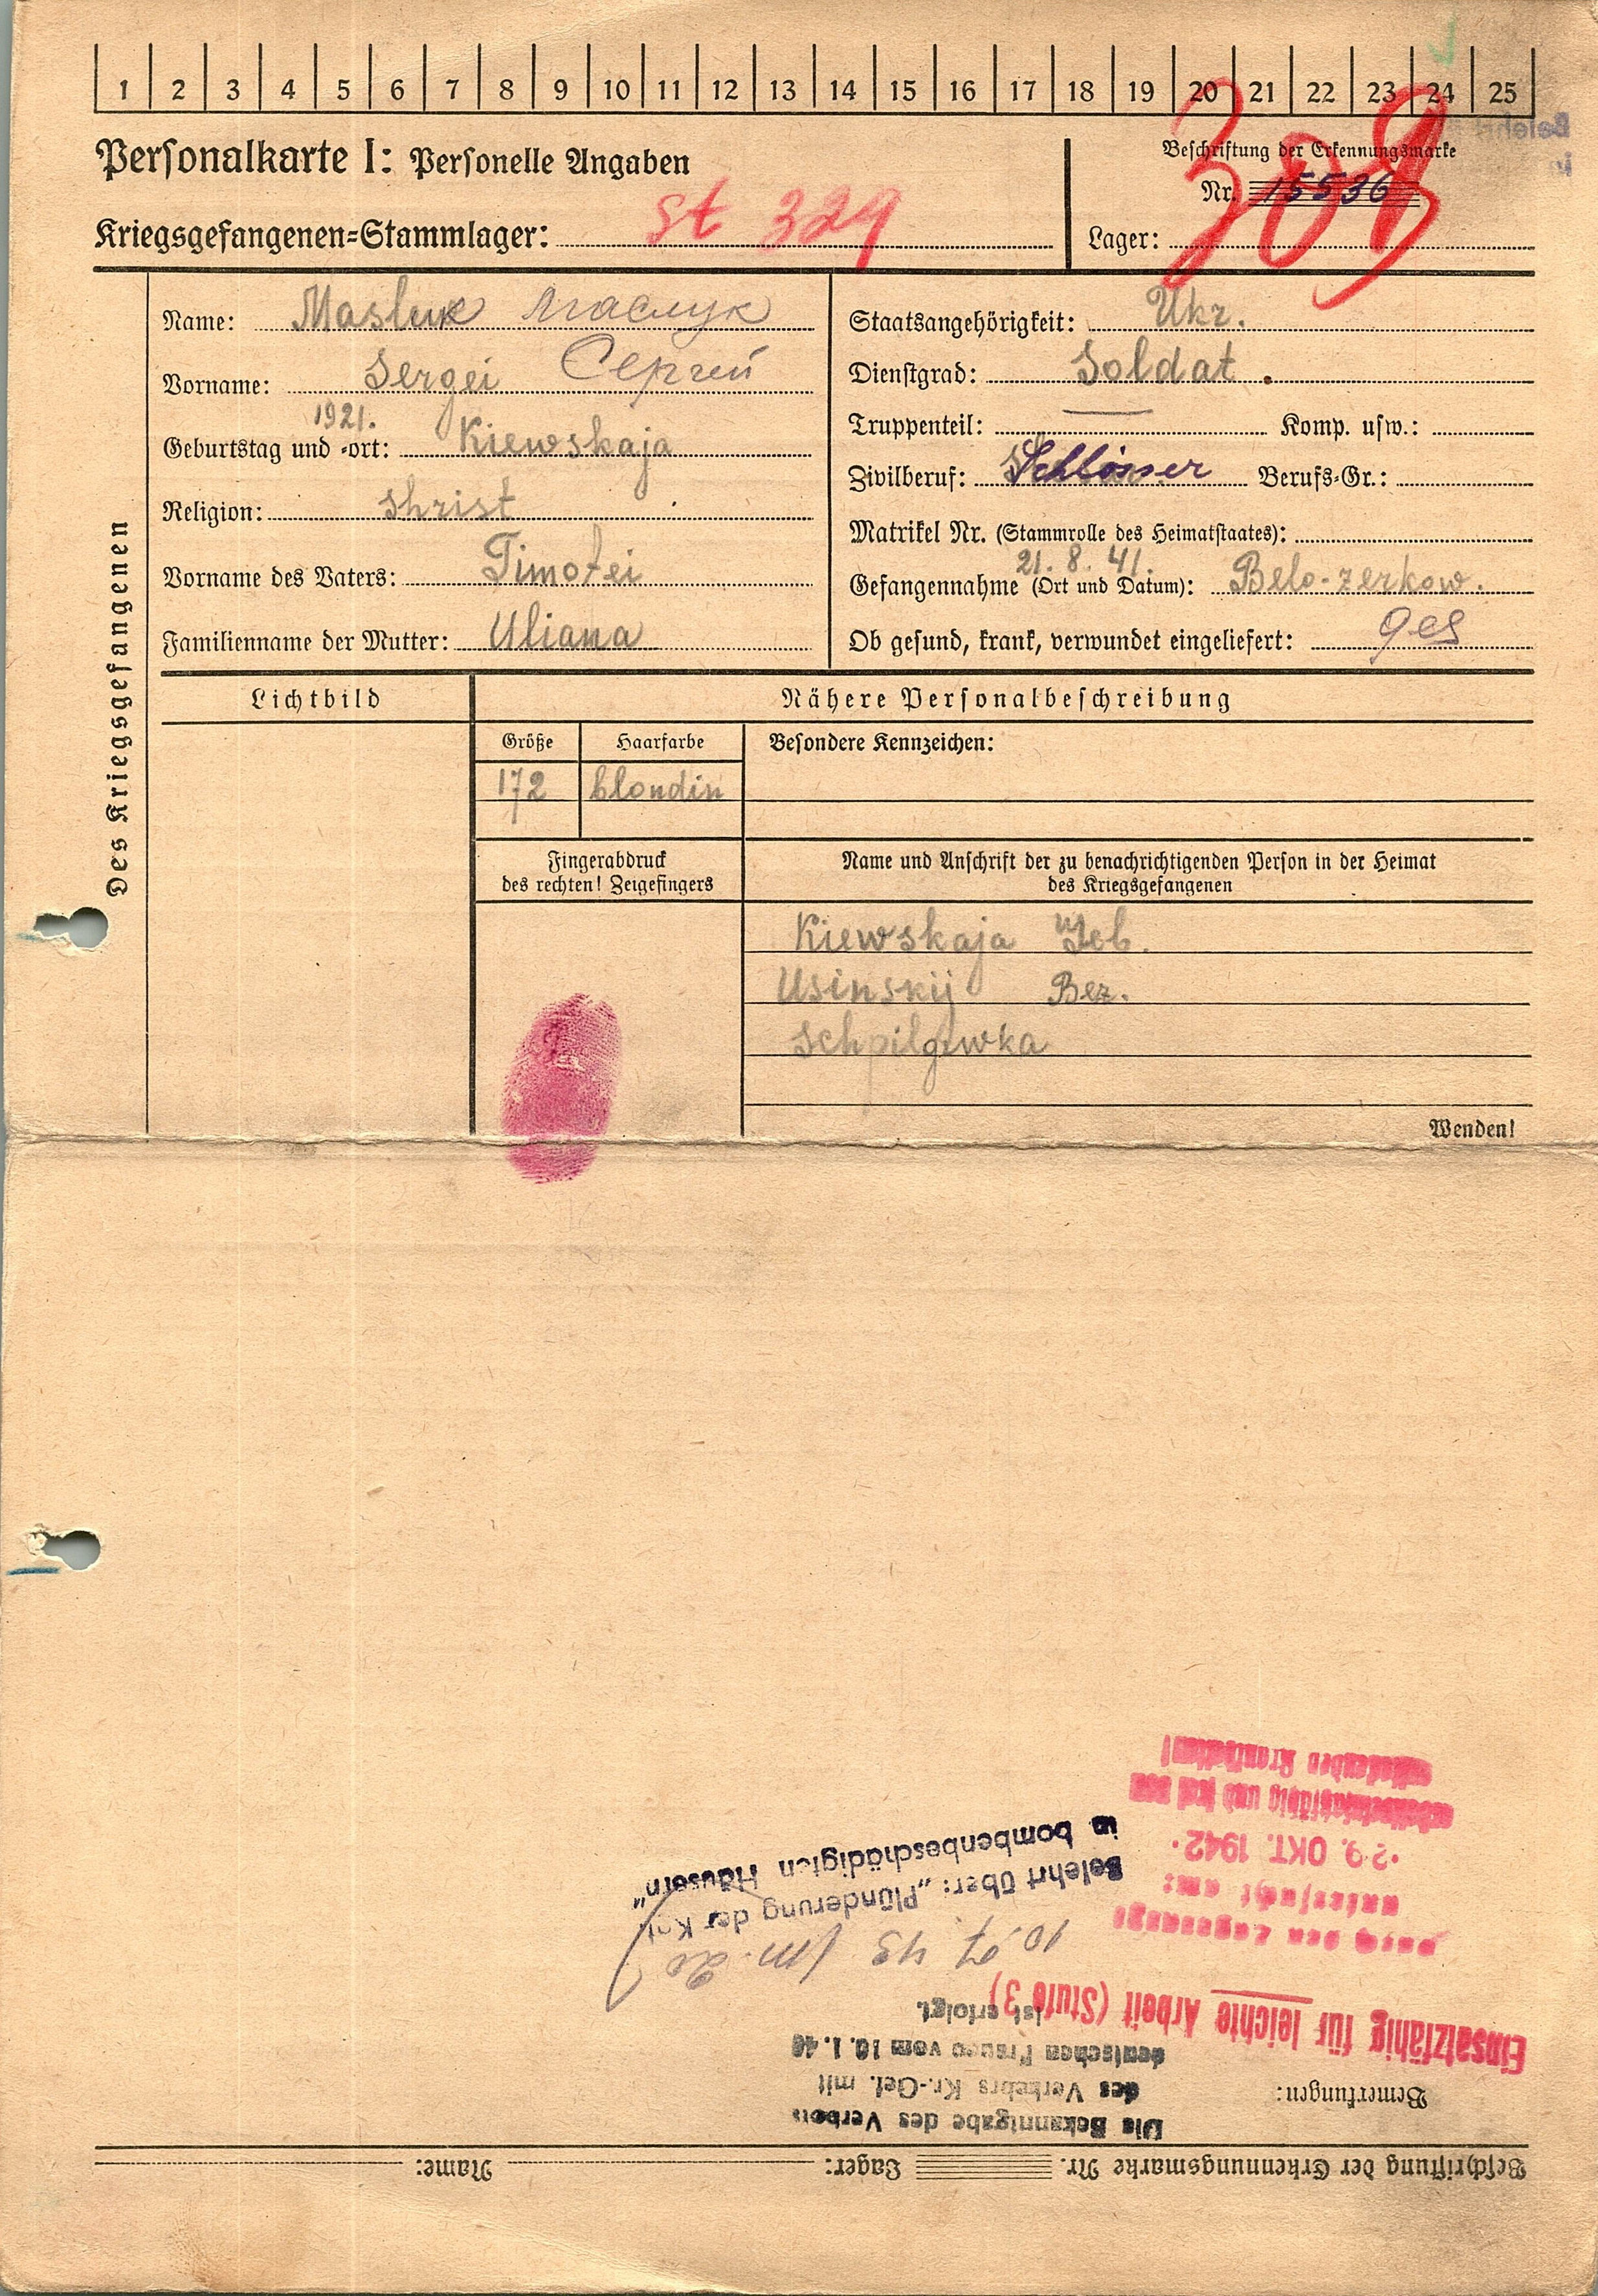 1 2 3 4 5 6 7 8 9 10 11 12 13 14 15 16 17 18 19 20 21 22 23 24 25
Personalkarte I: Personelle Angaben
Kriegsgefangenen=Stammlager: St 329
Beschriftung der Erkennungsmarke
Nr. 15536
Lager:
308
Des Kriegsgefangenen
Name: Masluk Маслук
Vorname: Sergei Сергей
1921.
Geburtstag und =ort: Kiewskaja
Religion: Shrist
Vorname des Vaters: Timofei
Familienname der Mutter: Uliana
Staatsangehörigkeit: Ukr.
Dienstgrad: Soldat.
Truppenteil: — Komp. usw.:
Zivilberuf: Schlosser Berufs=Gr.:
Matrikel Nr. (Stammrolle des Heimatstaates):
21. 8. 41.
Gefangennahme (Ort und Datum): Belo-zerkow.
Ob gesund, krank, verwundet eingeliefert: ges
Lichtbild
Nähere Personalbeschreibung
Größe Haarfarbe Besondere Kennzeichen:
172 blondin
Fingerabdruck
des rechten! Zeigefingers
Name und Anschrift der zu benachrichtigenden Person in der Heimat
des Kriegsgefangenen
Kiewskaja Geb.
Usinskij Bez.
Wenden!
Beschriftung der Erkennungsmarke Nr. Lager: Name:
Bemerkungen:
Die Bekanntgabe des Verbots
des Verkehrs Kr.-Gef. mit
deutschen Frauen vom 10.1.40
ist erfolgt.
Einsatzfähig für leichte Arbeit (Stufe 3)
untersucht am:
29. OKT. 1942
arbeitseinsatzfähig und frei von
ansteckenden Krankheiten!
10. 7. 43
Belehrt über: „Plünderung der
in bombenbeschädigten Häusern"